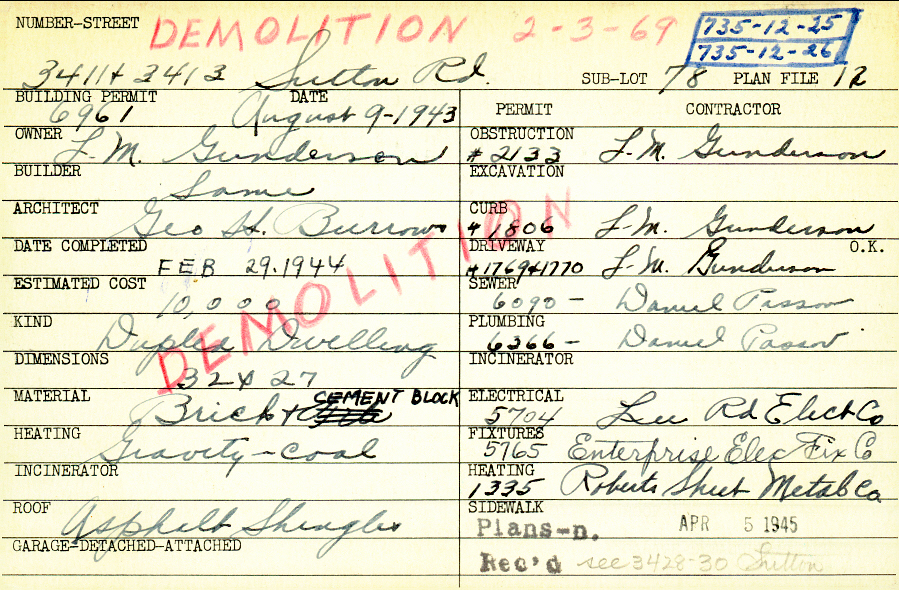 NUMBER-STREET DEMOLITION 2-3-69 735-12-25
735-12-26
3411+3413 Sutton Rd. SUB-LOT 78 PLAN FILE 12
BUILDING PERMIT DATE PERMIT CONTRACTOR
6961 August 9-1943
OWNER L.M. Gunderson OBSTRUCTION #2133 L.M. Gunderson
BUILDER Same EXCAVATION
ARCHITECT Geo H. Burrows CURB #1806 L.M. Gunderson
DATE COMPLETED FEB 29.1944 DRIVEWAY #1769+1770 L.M. Gunderson O.K.
ESTIMATED COST 10,000 SEWER 6090- Daniel Passov
KIND Duplex Dwelling PLUMBING 6366- Daniel Passov
DEMOLITION
DIMENSIONS 32x27 INCINERATOR
MATERIAL Brick + CEMENT BLOCK ELECTRICAL 5704 Lee Rd Elect Co
HEATING Gravity-coal FIXTURES 5765 Enterprise Elec Fix Co
INCINERATOR HEATING 1335 Roberts Sheet Metal Co.
ROOF Asphalt Shingles SIDEWALK
Plans-n. APR 5 1945
GARAGE-DETACHED-ATTACHED
Rec'd see 3428-30 Sutton